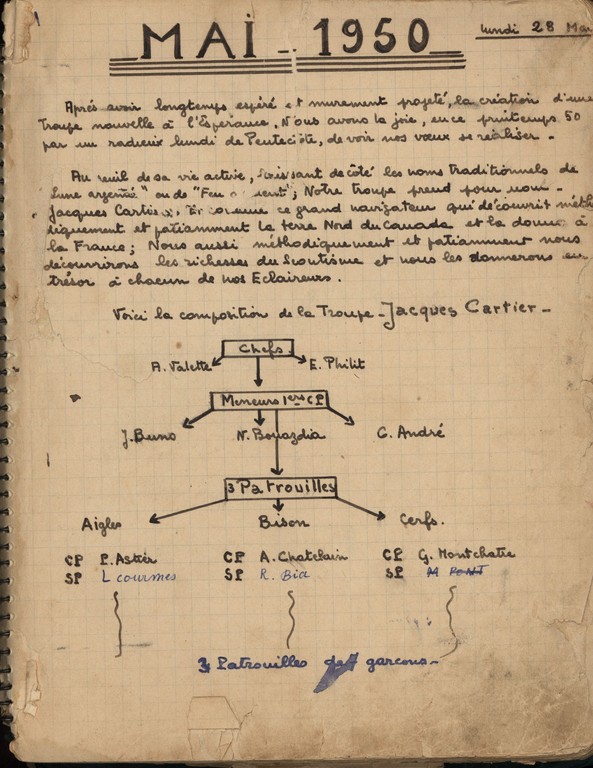 MAI - 1950
lundi 28 Mai
Après avoir longtemps espéré et murement projeté, la création d'une
Troupe nouvelle à l'Espérance, Nous avons la joie, en ce printemps 50
par un radieux lundi de Pentecôte, de voir nos vœux se réaliser -
Au seuil de sa vie active, laissant de côté les noms traditionnels de
"Lune argentée" ou de "Feu"; Notre troupe prend pour nom -
Jacques Cartier. ce grand navigateur qui découvrit méth
diquement et patiamment la terre Nord du Canada et la donna à
la France; Nous aussi méthodiquement et patiamment nous
découvrirons les richesses du Scoutisme et nous les donnerons en
trésor à chacun de nos Eclaireurs.
Voici la composition de la Troupe - Jacques Cartier -
Chefs.
A. Valette E. Philit
Meneurs 1ers CP
J. Buno N. Bouazdia C. André
3 Patrouilles
Aigles Bison Cerfs.
CP P. Astier CP A. Chatelain CP G. Montchatre
SP L courmes SP R. Bia SP M PONT
3 Patrouilles de 7 garcons -